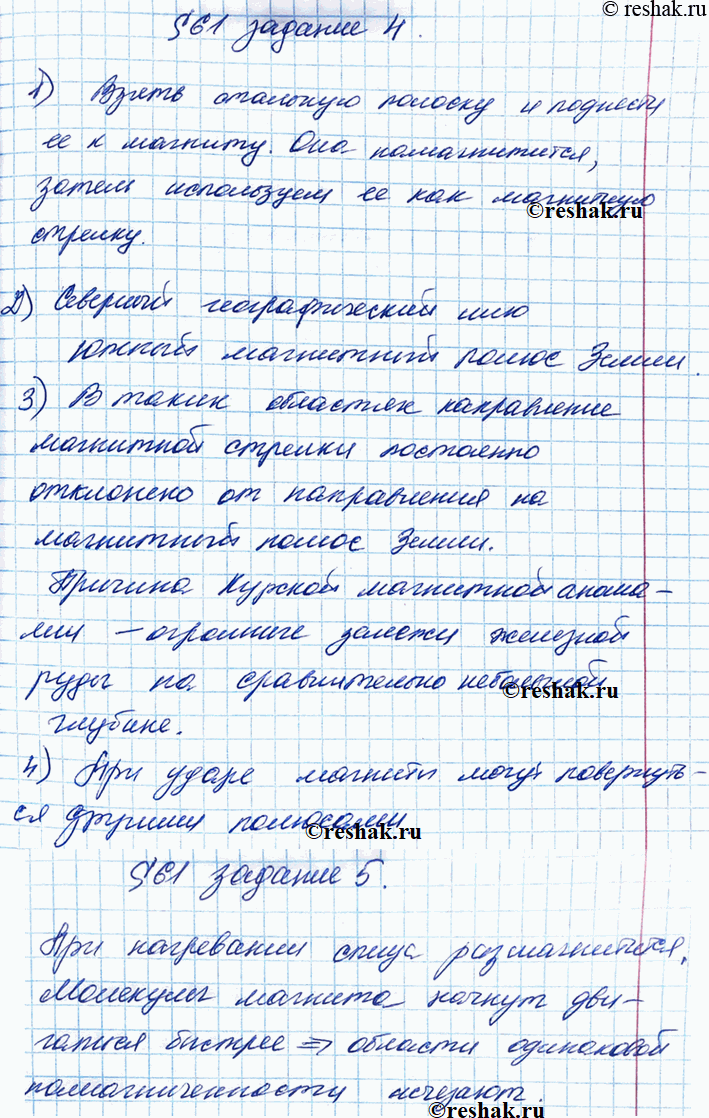 © reshak.ru
§61 задание 4.
1) Взять стальную полоску и поднести
ее к магниту. Она намагнитится,
затем используем ее как магнитную
©reshak.ru
стрелку.
2) Северный географический или
южный магнитный полюс Земли.
3) В таких областях направление
магнитной стрелки постоянно
отклонено от направления на
магнитный полюс Земли.
Причина Курской магнитной анома-
лии – огромные залежи железной
руды на сравнительно небольшой
©reshak.ru
глубине.
4) При ударе магниты могут повернуть-
ся другими полюсами
©reshak.ru
§61 задание 5.
При нагревании спица размагнитится.
Молекулы магнита начнут дви-
гаться быстрее ⇒ области одинаковой
намагниченности исчезают.
©reshak.ru